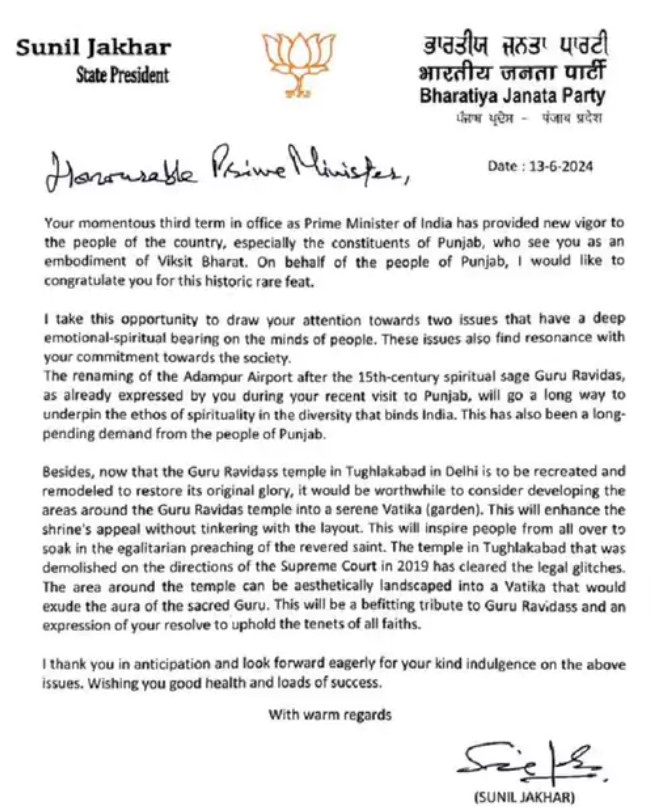 Sunil Jakhar
State President
ਭਾਰਤੀਯ ਜਨਤਾ ਪਾਰਟੀ
भारतीय जनता पार्टी
Bharatiya Janata Party
ਪੰਜਾਬ ਪ੍ਰਦੇਸ਼ - पंजाब प्रदेश
Honourable Prime Minister,
Date : 13-6-2024
Your momentous third term in office as Prime Minister of India has provided new vigor to
the people of the country, especially the constituents of Punjab, who see you as an
embodiment of Viksit Bharat. On behalf of the people of Punjab, I would like to
congratulate you for this historic rare feat.
I take this opportunity to draw your attention towards two issues that have a deep
emotional-spiritual bearing on the minds of people. These issues also find resonance with
your commitment towards the society.
The renaming of the Adampur Airport after the 15th-century spiritual sage Guru Ravidas,
as already expressed by you during your recent visit to Punjab, will go a long way to
underpin the ethos of spirituality in the diversity that binds India. This has also been a long-
pending demand from the people of Punjab.
Besides, now that the Guru Ravidass temple in Tughlakabad in Delhi is to be recreated and
remodeled to restore its original glory, it would be worthwhile to consider developing the
areas around the Guru Ravidas temple into a serene Vatika (garden). This will enhance the
shrine's appeal without tinkering with the layout. This will inspire people from all over to
soak in the egalitarian preaching of the revered saint. The temple in Tughlakabad that was
demolished on the directions of the Supreme Court in 2019 has cleared the legal glitches.
The area around the temple can be aesthetically landscaped into a Vatika that would
exude the aura of the sacred Guru. This will be a befitting tribute to Guru Ravidass and an
expression of your resolve to uphold the tenets of all faiths.
I thank you in anticipation and look forward eagerly for your kind indulgence on the above
issues. Wishing you good health and loads of success.
With warm regards
(SUNIL JAKHAR)